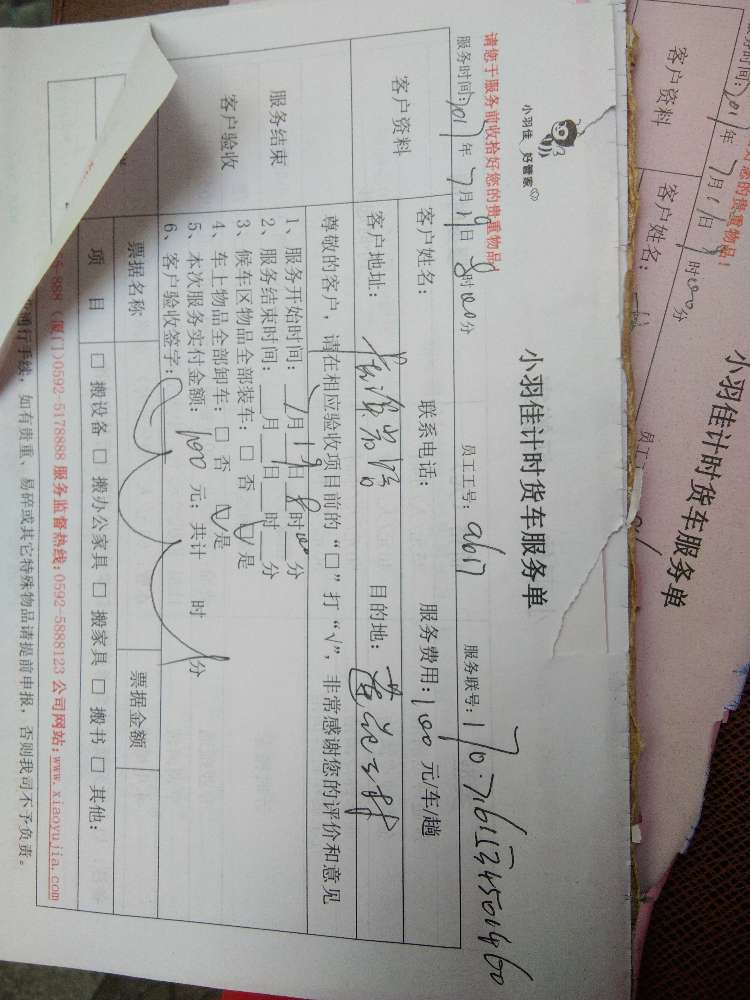 小羽佳 好管家
小羽佳计时货车服务单
请您于服务前收拾好您的贵重物品!
服务时间: 2017年 7月19日 8时00分 员工工号: 服务联号:
客户资料
客户姓名: 联系电话: 服务费用: 100 元/车/趟
客户地址: 目的地:
服务结束
客户验收
尊敬的客户，请在相应验收项目前的“□”打“√”，非常感谢您的评价和意见
1、服务开始时间: 7月19日8时00分
2、服务结束时间: __月__日__时__分
3、候车区物品全部装车: □ 否 √ 是
4、车上物品全部卸车: □ 否 √ 是
5、本次服务实付金额: 100 元; 共计 时 分
6、客户验收签字:
票据名称 票据金额
项 目 □ 搬设备 □ 搬办公家具 □ 搬家具 □ 搬书 □ 其他:
888 (厦门)0592-5178888 服务监督热线:0592-5888123 公司网站:www.xiaoyujia.com
通行手续，如有贵重、易碎或其它特殊物品请提前申报，否则我司不予负责。
小羽佳计时货车服务单
您的贵重物品!
务时间: 7月 日 时00分
客户资料
客户姓名:
员工工